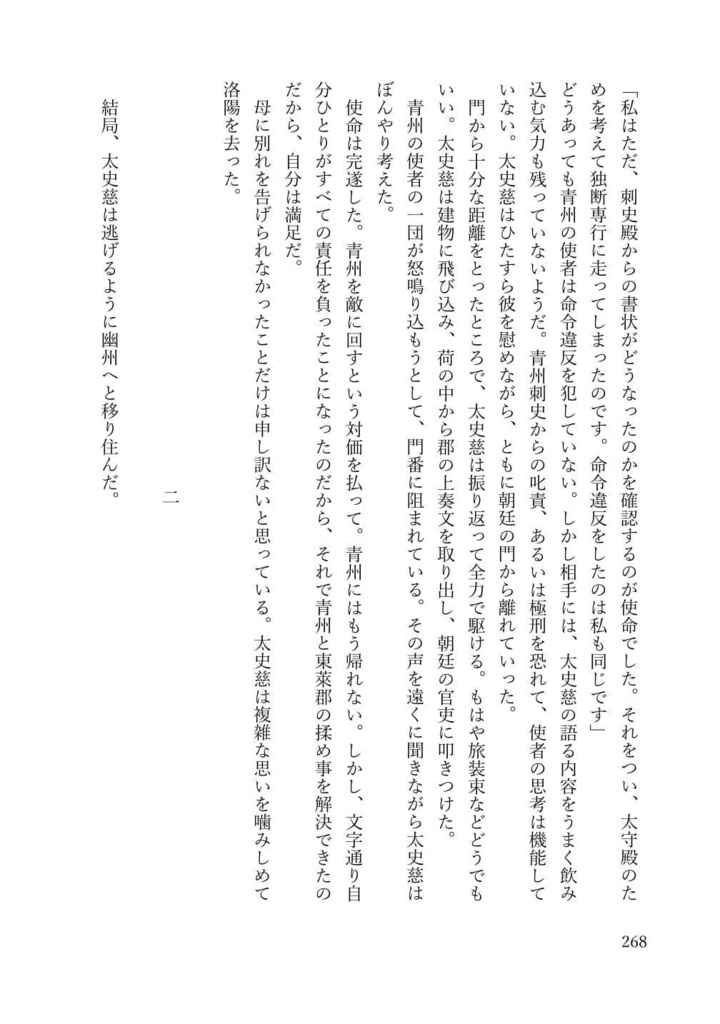 「私はただ、刺史殿からの書状がどうなったのかを確認するのが使命でした。それをつい、太守殿のた
めを考えて独断専行に走ってしまったのです。命令違反をしたのは私も同じです」
どうあっても青州の使者は命令違反を犯していない。しかし相手には、太史慈の語る内容をうまく飲み
込む気力も残っていないようだ。青州刺史からの叱責、あるいは極刑を恐れて、使者の思考は機能して
いない。太史慈はひたすら彼を慰めながら、ともに朝廷の門から離れていった。
門から十分な距離をとったところで、太史慈は振り返って全力で駆ける。もはや旅装束などどうでも
いい。太史慈は建物に飛び込み、荷の中から郡の上奏文を取り出し、朝廷の官吏に叩きつけた。
青州の使者の一団が怒鳴り込もうとして、門番に阻まれている。その声を遠くに聞きながら太史慈は
ぼんやり考えた。
使命は完遂した。青州を敵に回すという対価を払って。青州にはもう帰れない。しかし、文字通り自
分ひとりがすべての責任を負ったことになったのだから、それで青州と東莱郡の揉め事を解決できたの
だから、自分は満足だ。
母に別れを告げられなかったことだけは申し訳ないと思っている。太史慈は複雑な思いを噛みしめて
洛陽を去った。
二
結局、太史慈は逃げるように幽州へと移り住んだ。
268